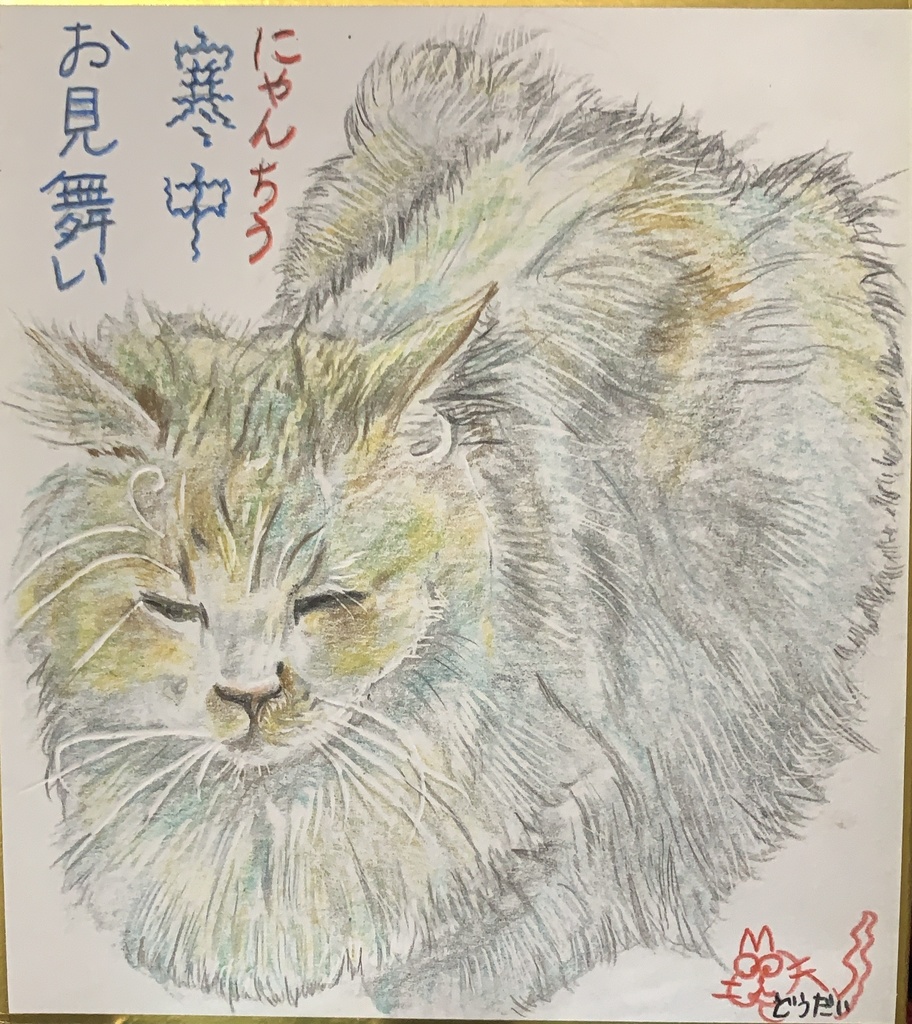 にゃんちう
寒中
お見舞い
どうだい